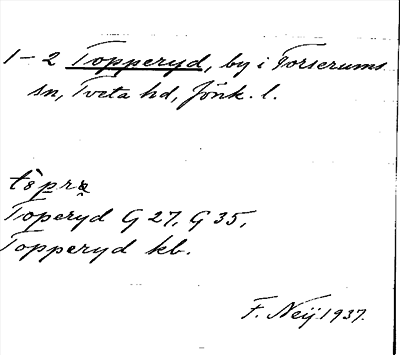 1–2 Topperyd, by i Forserums
sn, Tveta hd, Jönk. l.
Toperyd G 27, G 35,
Topperyd kb.
F. Neij 1937.